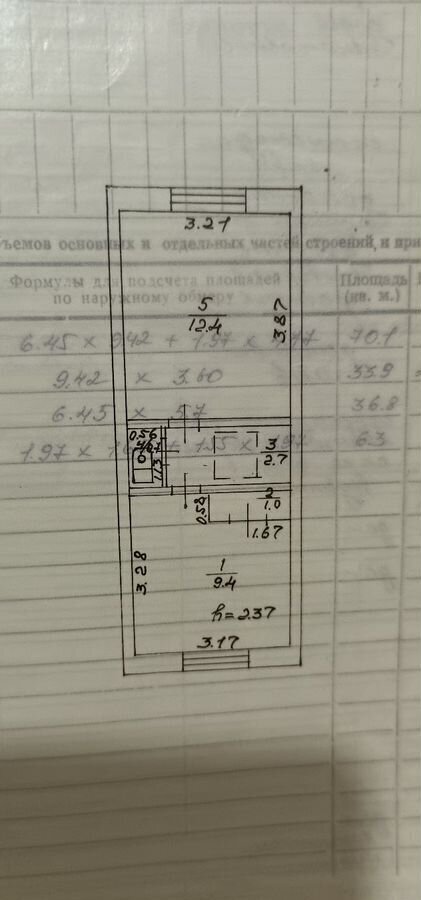 3.21
ъемов основных и отдельных частей строений, и при
Формулы для подсчета площадей
по наружному обмеру
Площадь
(кв. м.)
5
12.4
3.87
6.45 x 9.42 + 1.97 x
70.1
9.42 x 3.60
33.9
6.45 x 5.7
36.8
0.56
1.13
3
2.7
1.97 x
6.3
2
1.0
0.58
1.67
3.28
1
9.4
h=2.37
3.17